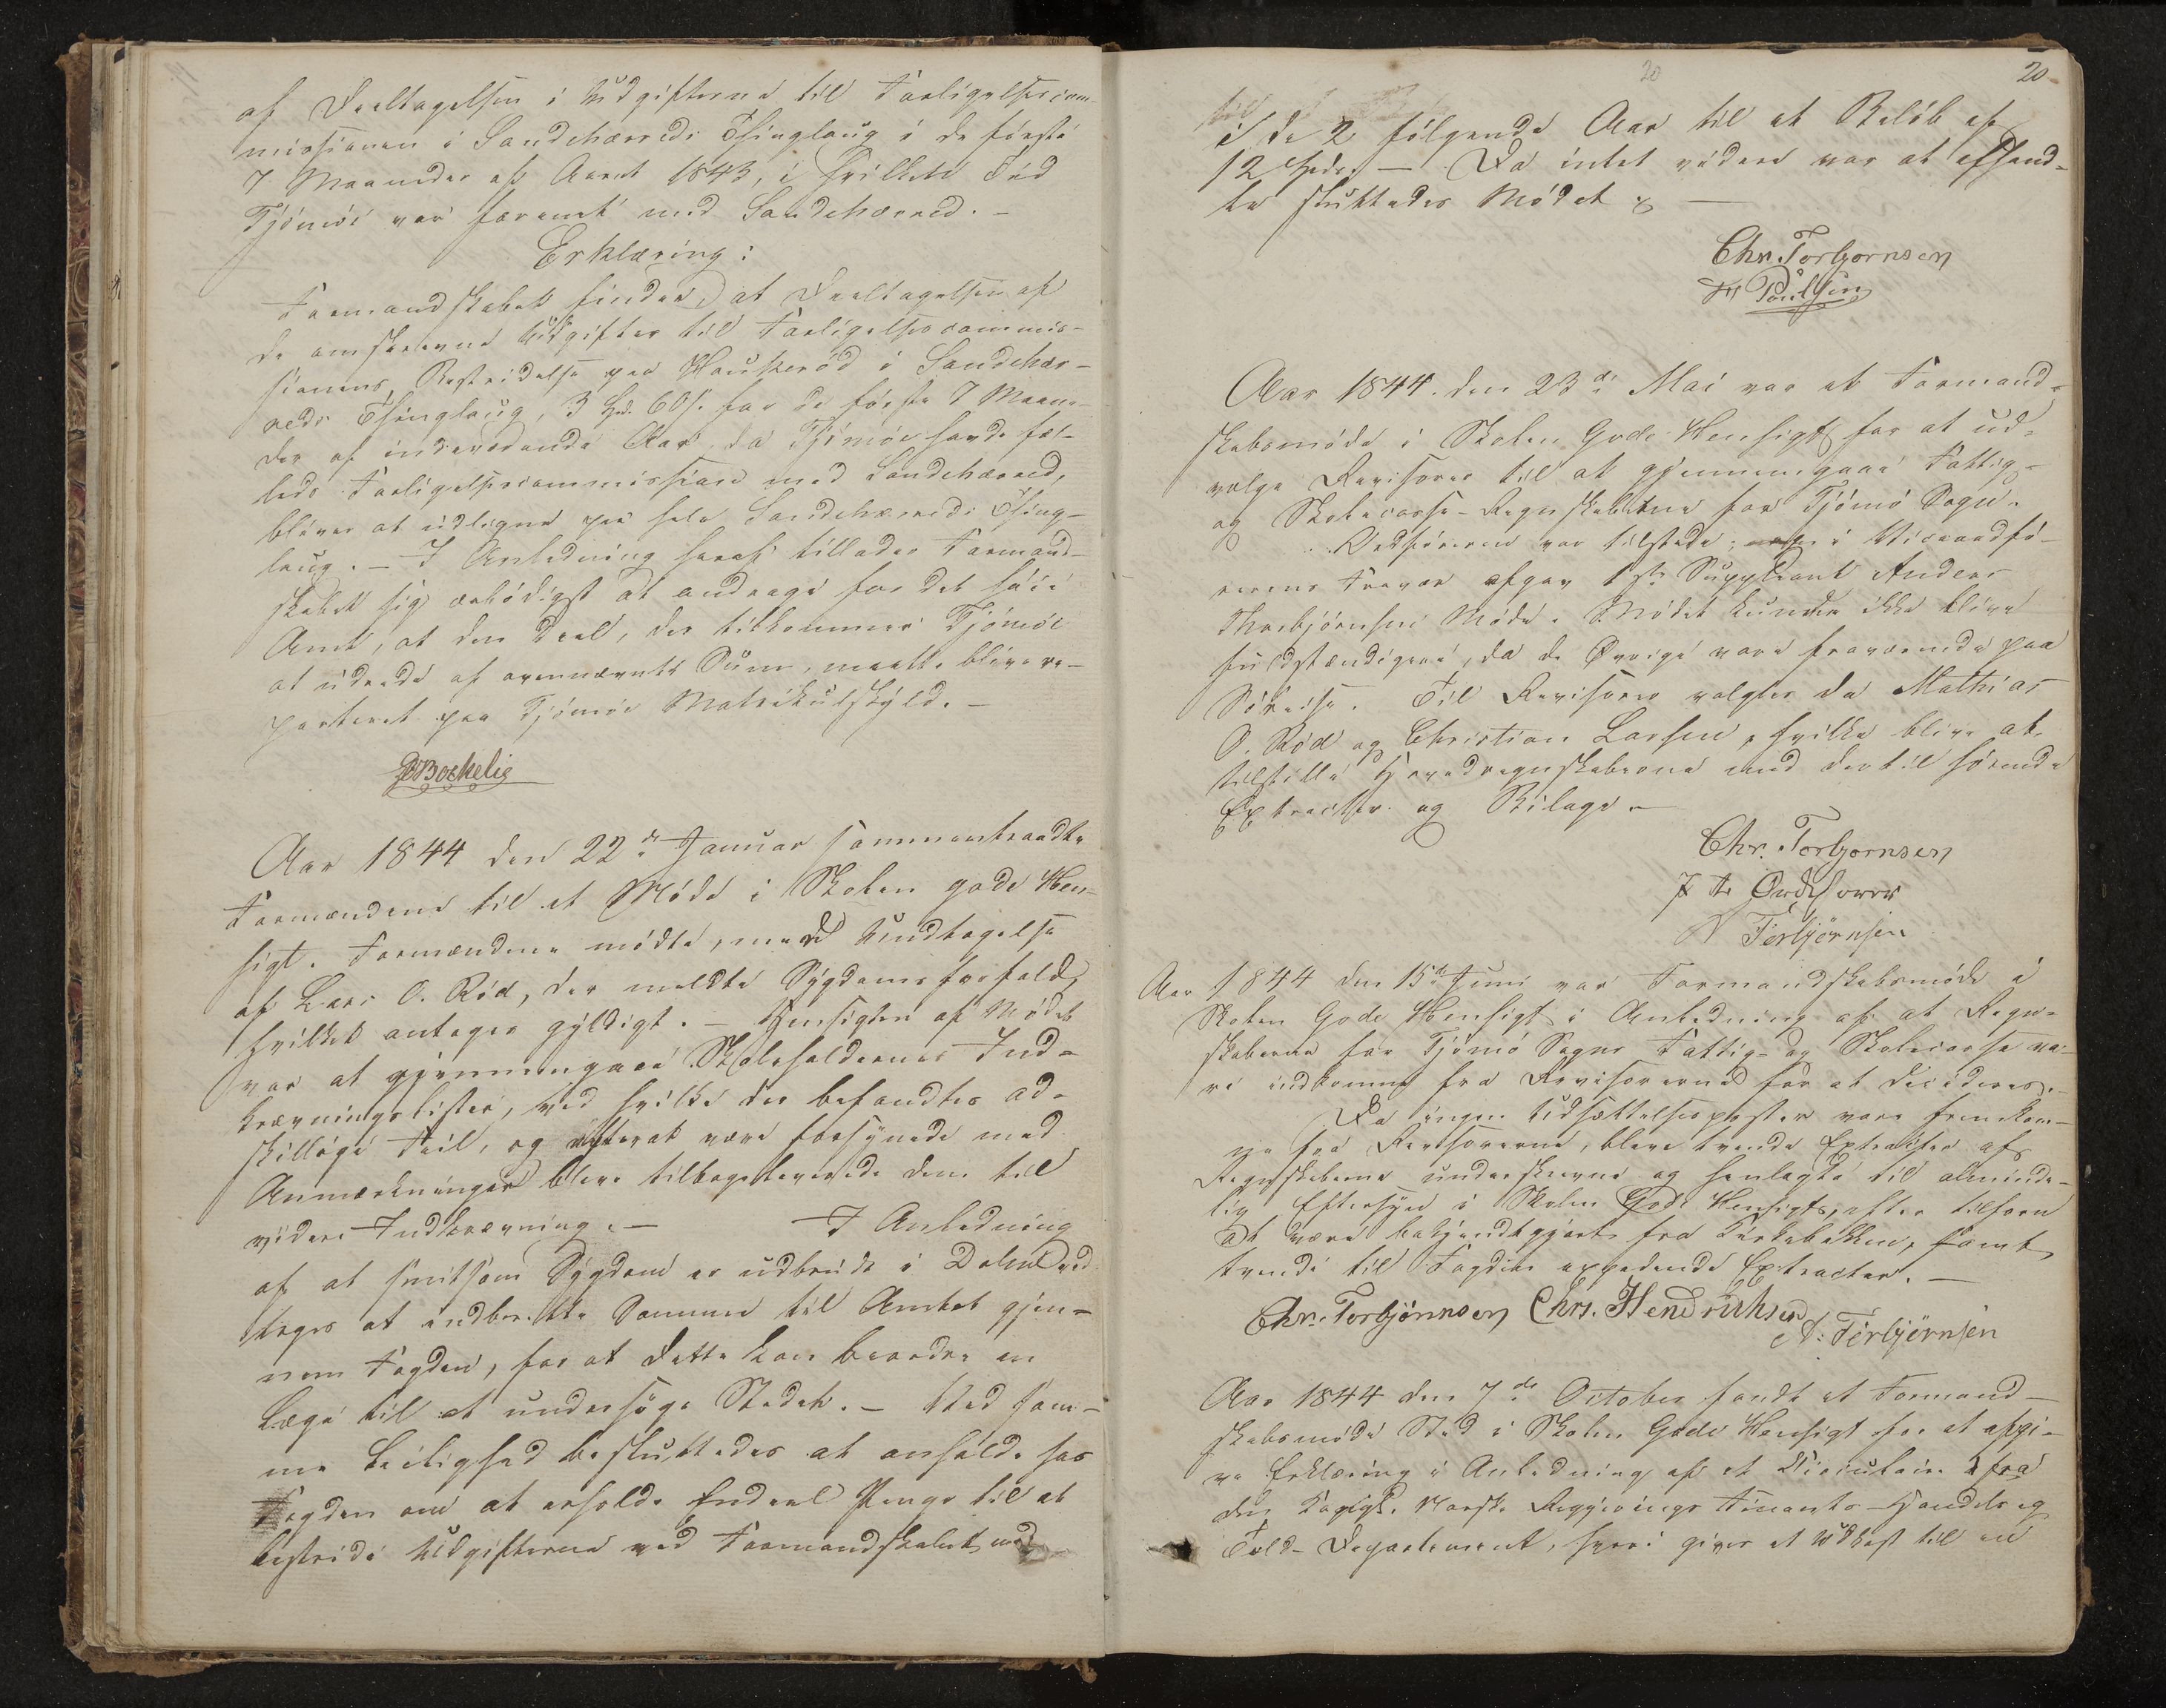 af Deeltagelsen i Udgifterne til Forligelsescom-
missionen i Sandehærreds Thinglaug i de første
7 Maaneder af Aaret 1843, i hvilken Tid
Tjømøe var forenet med Sandehærred. -
Erklæring:
Formandskabet finder, at Deeltagelsen af
de omskrevne Udgifter til Forligelsescommis-
sionens Bestridelse paa Haukerød i Sandehær-
reds Thinglaug, 3 Spd. 60 s. for de første 7 Maane-
der af indeværende Aar da Tjømøe havde fæl-
leds Forligelsescommission med Sandehærred,
bliver at udligne paa hele Sandehærreds Thing-
laug. - I Anledning heraf tillader Formand-
skabet sig ærbødigst at andrage for det høie
Amt, at den Deel, der tilkommer Tjømøe
at udrede af ovennævnte Sum, maatte blive re-
parteret paa Tjømøe Matrikulskyld. -
Bockelie
Aar 1844 den 22de Januar sammentraadte
Formændene til et Møde i Skolen gode Hen-
sigt. Formændene mødte, med Undtagelse
af Lars O. Rød, der meldte Sygdomsforfald,
hvilket antages gyldigt. - Hensigten af Mødet
var at gjennemgaae Skoleholdernes Ind-
krævningslister, ved hvilke der befandtes ad-
skillige Feil, og efterat være forsynede med
Anmærkninger bleve tilbageleverede dem til
videre Indkrævning. - I Anledning
af at smitsom Sygdom er udbrudt i
at indberette Samme til Amtet gjen-
nem Fogden, for at dette kan beordre en
Læge til at undersøge Stedet. - Ved sam-
me Leilighed besluttedes at anholde hos
Fogden om at erholde Endeel Penge til at
bestride Udgifterne ved Formandskabet
20
20
i de 2 følgende Aar til et Beløb af
12 Spd. - Da intet videre var at afhand-
le sluttedes Mødet
Chr. Torbjornsen
Poulsen
Aar 1844 den 23de Mai var et Formand-
skabsmøde i Skolen Gode Hensigt for at ud-
vælge Revisorer til at gjennemgaae Fattig-
og Skolecasse-Regnskaberne for Tjømø Sogn.
Ordføreren var tilstede; i Viceordfø-
rerens Fravær afgav 1ste Suppleant Anders
Thorbjørnsen Møde. Mødet kunde ikke blive
fuldstændigere, da de Øvrige vare fraværende paa
Søreise. Til Revisorer valgtes da Mathias
O. Rød og Christian Larsen, hvilke blive at
tilstille Hovedregnskaberne med dertil hørende
Extracter og Bilage. -
Chr. Torbjornsen
Torbjørnsen
Aar 1844 den 15de Juni var Formandskabsmøde i
Skolen Gode Hensigt i Anledning af at Regn-
skaberne for Tjømø Sogns Fattig- og Skolecasse va-
re indkomne fra Revisorerne for at decideres.
Da ingen Udsættelsesposter vare fremkom-
ne fra Revisorerne, bleve tvende Extracter af
Regnskaberne underskrevne og henlagte til alminde-
lig Eftersyn i Skolen Gode Hensigt, efter tilforn
at være bekjendtgjort fra Kirkebakken, samt
tvende til Fogden expederede Extracter. -
Chr. Torbjörnnsen Chrs. Hendrichsen
A. Torbjörnsen
Aar 1844 den 7de October fandt et Formand-
skabsmøde Sted i Skolen Gode Hensigt for at afgi-
ve Erklæring i Anledning af et Circulaire fra
den Kongelige Norske Regjerings Finants-Handels og
Told-Departement, hvori gives et Udkast til en